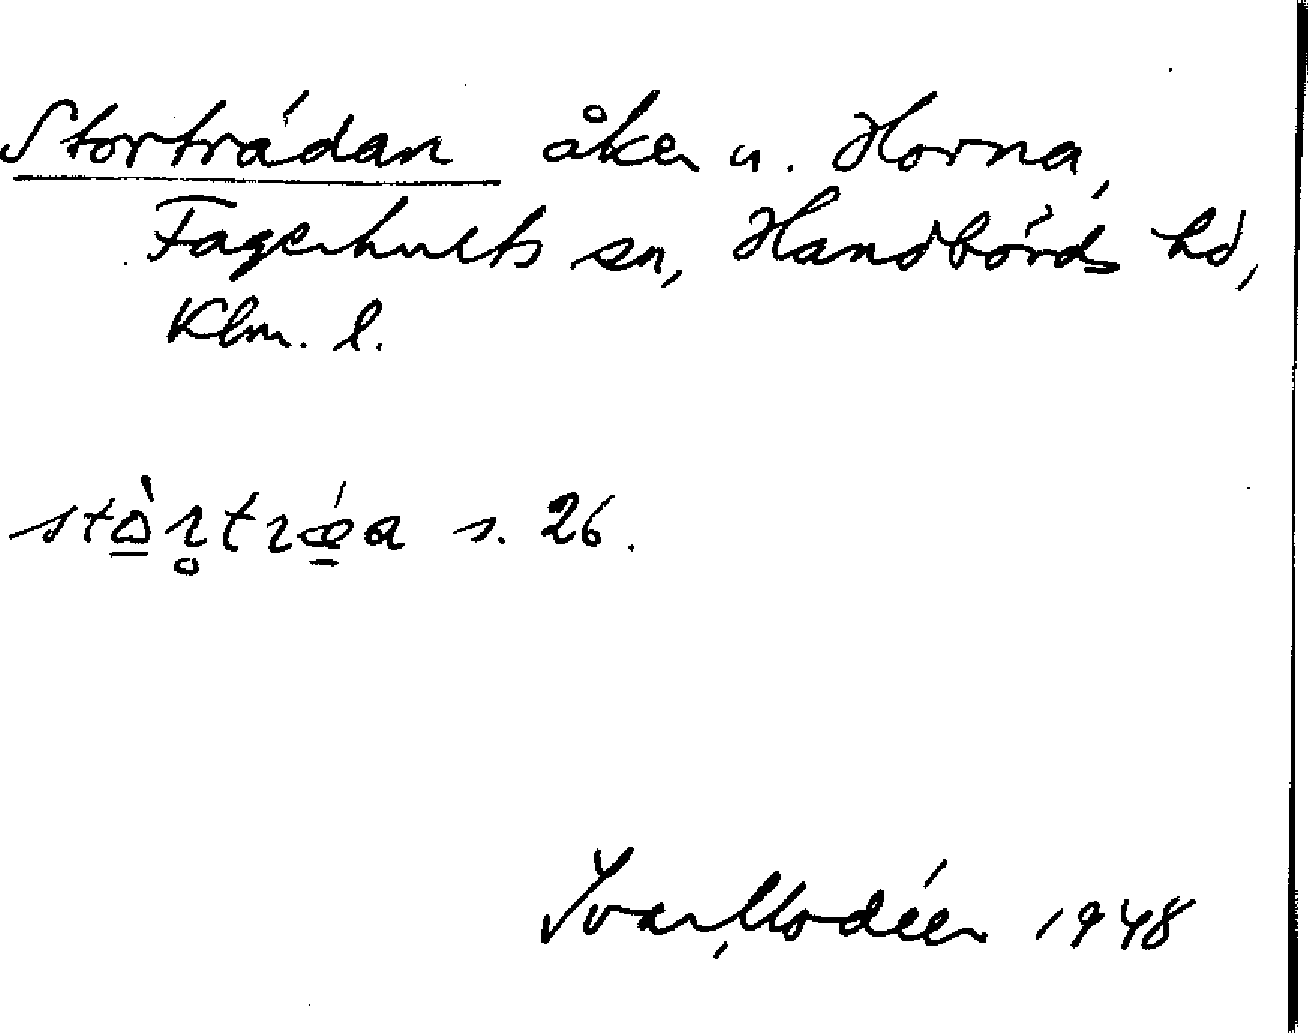 Stortrádan åker u. Horna,
Fagerhults sn, Handbörds hd,
Klm. l.
s. 26.
Ivar Modéer 1948